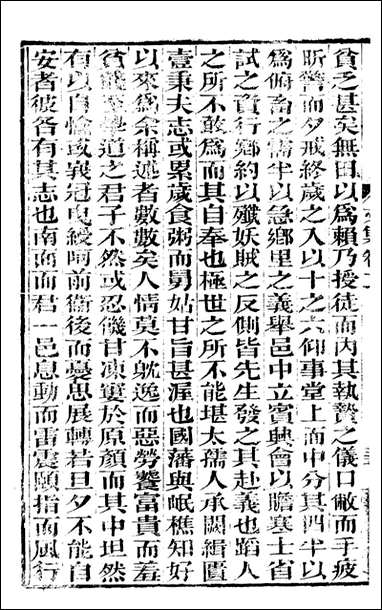 貧乏甚矣無田以爲賴乃授徒而內其執贄之儀口敝而手疲
昕警而夕戒終歲之入以十之六仰事堂上而中分其四半以
爲俯畜之需半以急鄉里之義舉邑中立賓興會以贍寒士省
試之資行鄉約以殲妖賊之反側皆先生發之其赴義也蹈人
之所不敢爲而其自奉也極世之所不能堪太孺人承闕緝匱
壹秉夫志或累歲食粥而舅姑甘旨甚渥也國藩與岷樵知好
以來爲余稱述者數數矣人情莫不躭逸而惡勞饕富貴而羞
貧賤至學道之君子不然或忍饑甘凍寠於原顏而其中坦然
有以自愉或袞冠曳綬呵前衞後而憂思展轉若旦夕不能自
安者彼各有其志也南面而君一邑息動而雷震頤指而風行